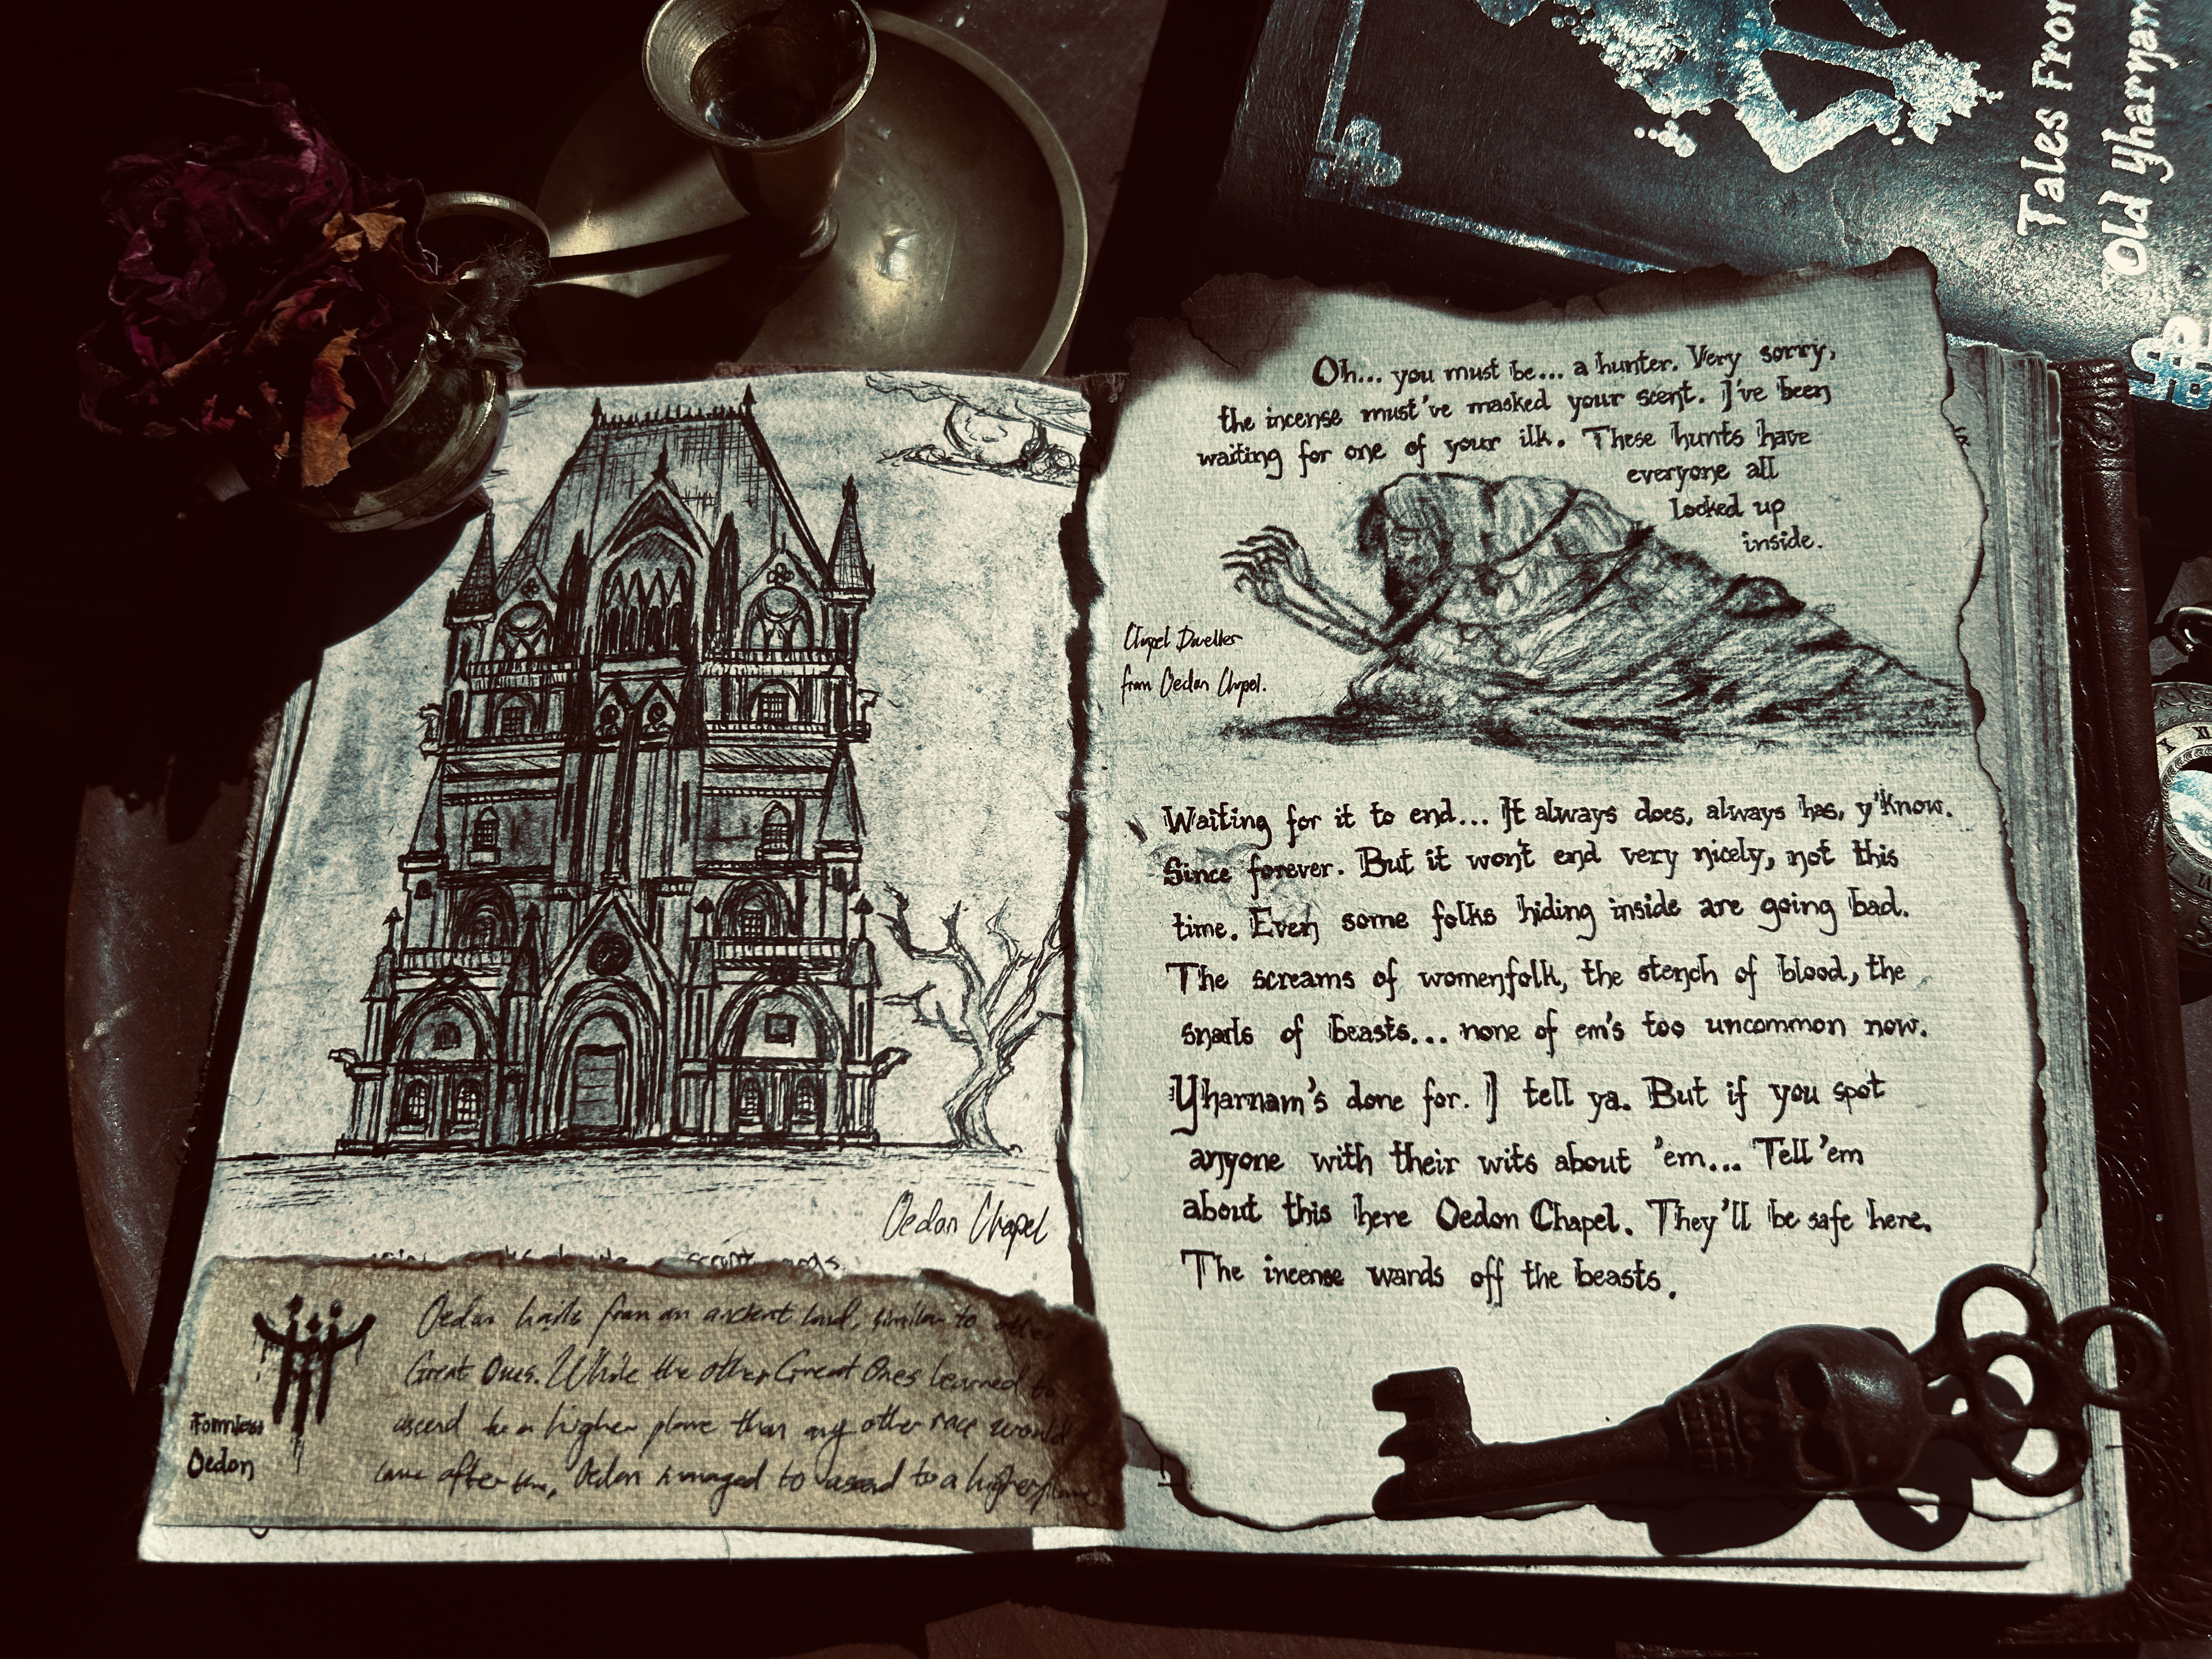 Tales From
Old Yharnam
Oedon Chapel
Formless
Oedon
Oedon hails from an ancient land, similar to other
Great Ones. While the other Great Ones learned to
ascend to a higher plane than any other race would
come after them, Oedon managed to ascend to a higher plane
Oh... you must be... a hunter. Very sorry,
the incense must've masked your scent. I've been
waiting for one of your ilk. These hunts have
everyone all
locked up
inside.
Chapel Dweller
from Oedon Chapel.
Waiting for it to end... It always does, always has, y'know.
Since forever. But it won't end very nicely, not this
time. Even some folks hiding inside are going bad.
The screams of womenfolk, the stench of blood, the
snarls of beasts... none of em's too uncommon now.
Yharnam's done for. I tell ya. But if you spot
anyone with their wits about 'em... Tell 'em
about this here Oedon Chapel. They'll be safe here.
The incense wards off the beasts.